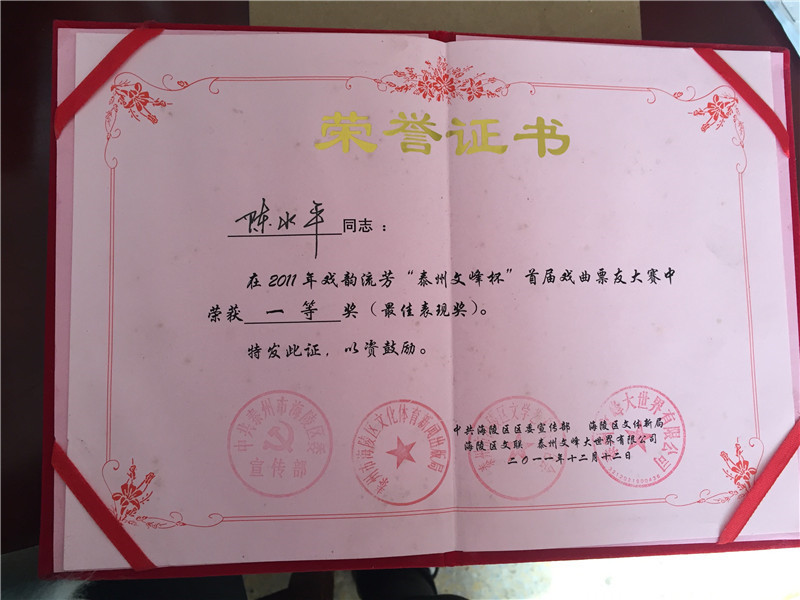 荣誉证书
陈水平同志：
在2011年戏韵流芳“泰州文峰杯”首届戏曲票友大赛中
荣获一等奖（最佳表现奖）。
特发此证，以资鼓励。
中共海陵区区委宣传部 海陵区文体新局
海陵区文联 泰州文峰大世界有限公司
二〇一一年十二月十二日
中共泰州市海陵区委
宣传部
泰州市海陵区文化体育新闻出版局